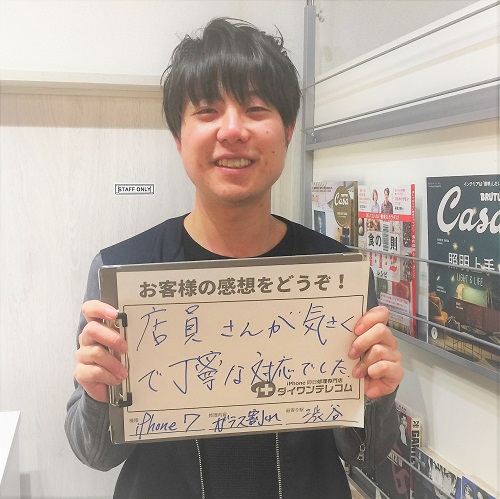 STAFF ONLY
お客様の感想をどうぞ!
店員さんが気さく
で丁寧な対応でした。
iPhone 即日修理専門店
ダイワンテレコム
機種 iPhone 7 修理内容 ガラス割れ 最寄り駅 渋谷
Casa
食の 則
レシピ
インテリアは
BRUTUS
Casa
照明上手
LIGHT & LIFE